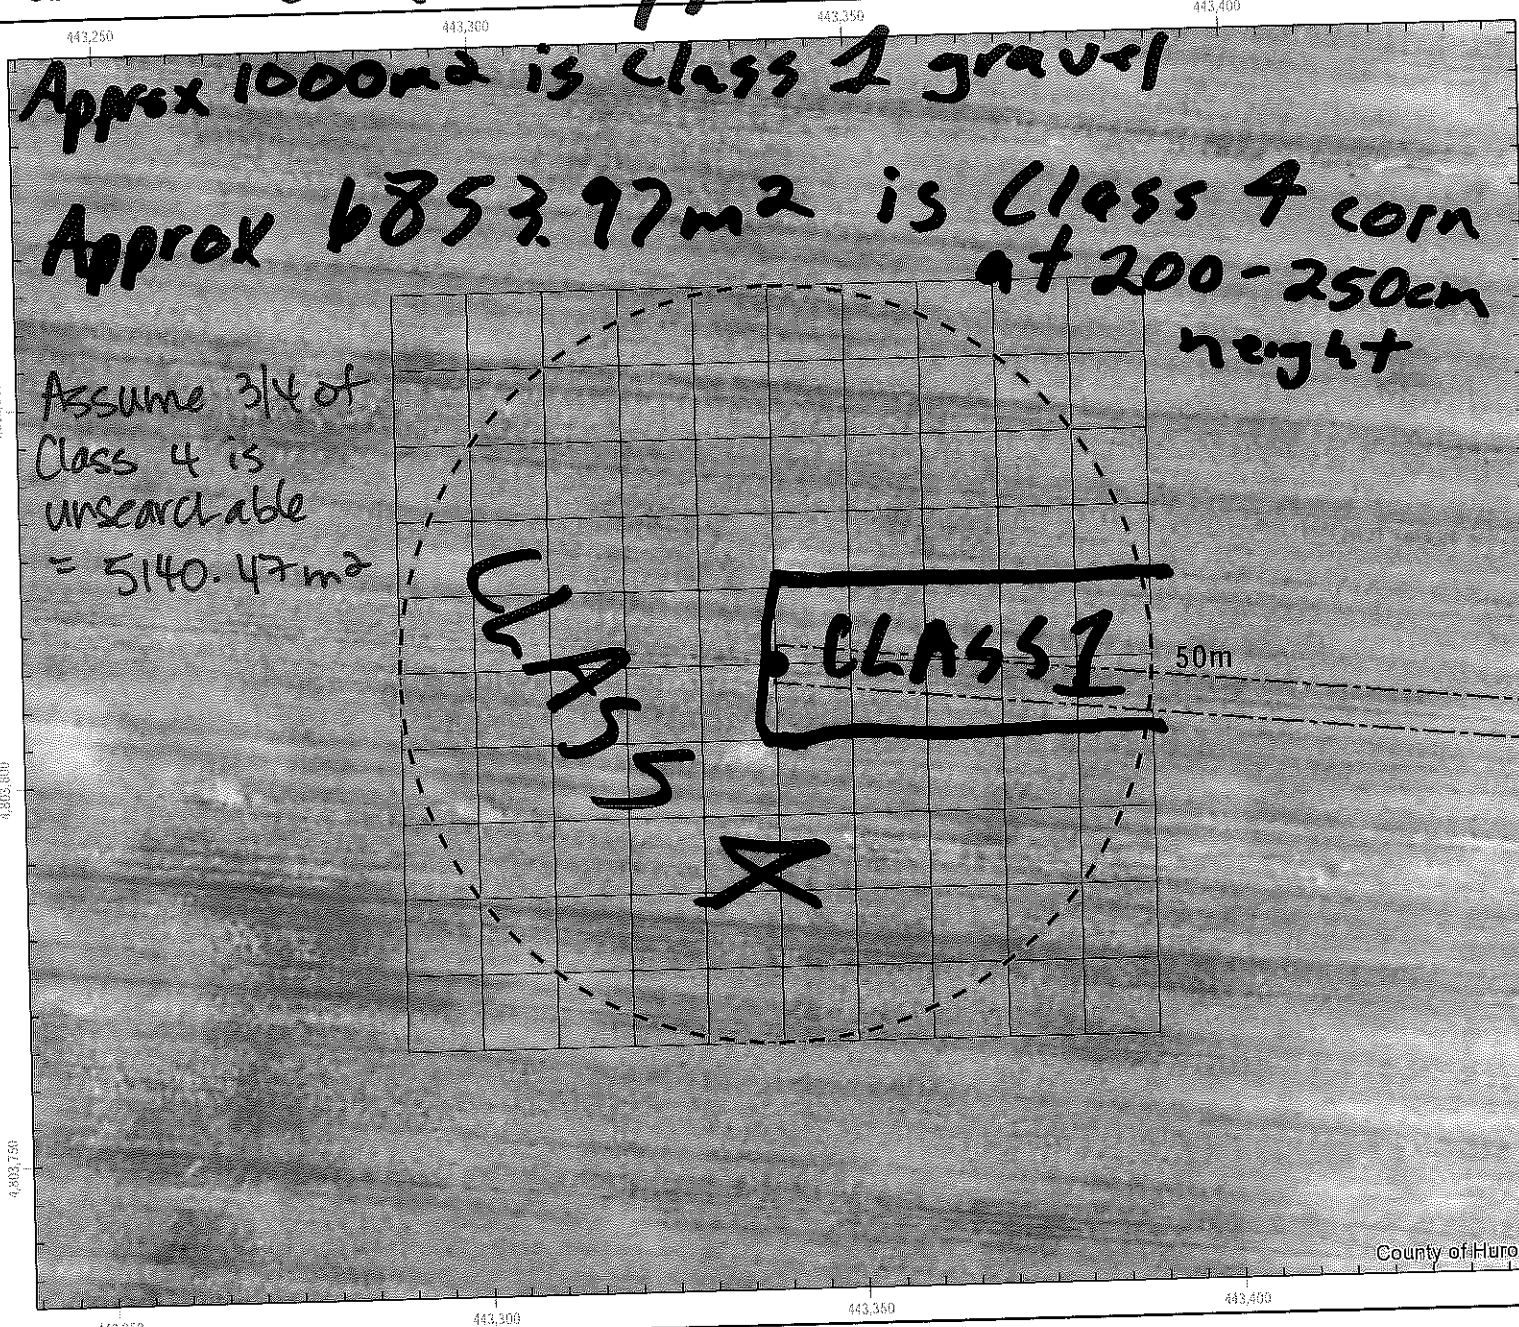 443,250
443,300
443,350
443,400
Approx 1000m2 is Class 1 gravel
Approx 6853.97m2 is Class 4 corn
at 200-250cm
height
Assume 3/4 of
Class 4 is
unsearchable
= 5140.47m2
CLASS
4
CLASS 1
50m
4,803,800
4,803,750
County of Huro
443,300
443,350
443,400